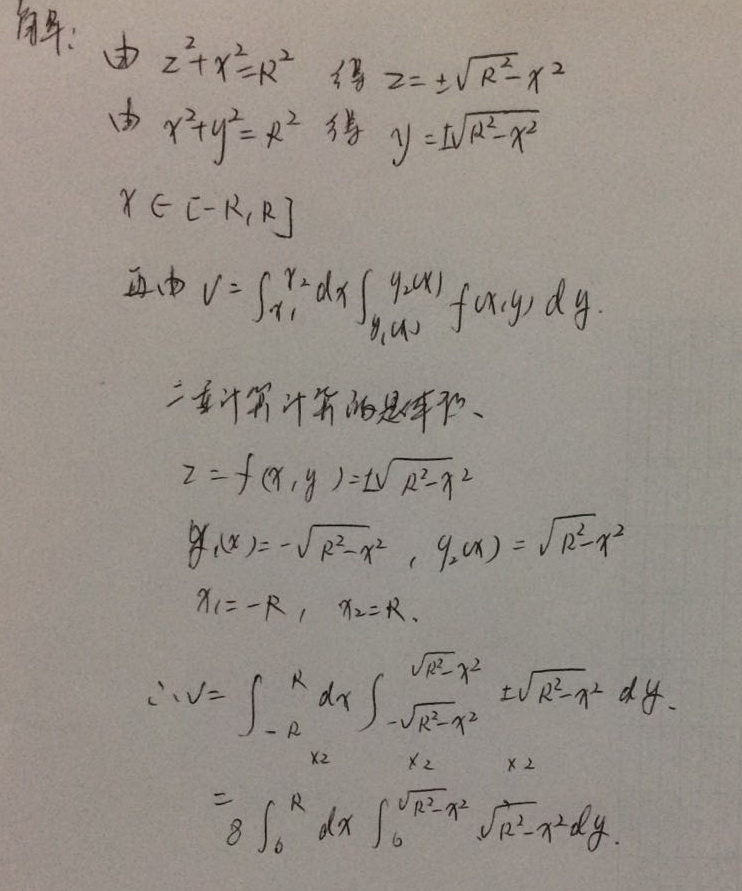 解：
由 z²+x²=R² 得 z=±√R²-x²
由 x²+y²=R² 得 y=±√R²-x²
x∈[-R,R]
再由 V=∫_{x₁}^{x₂}dx∫_{y₁(x)}^{y₂(x)} f(x,y)dy.
二重计算计算的是体积、
z=f(x,y)=±√R²-x²
y₁(x)=-√R²-x² , y₂(x)=√R²-x²
x₁=-R, x₂=R、
∴V=∫_{-R}^{R}dx∫_{-√R²-x²}^{√R²-x²} ±√R²-x² dy.
×2 ×2 ×2
=8∫_{0}^{R}dx∫_{0}^{√R²-x²} √R²-x² dy.